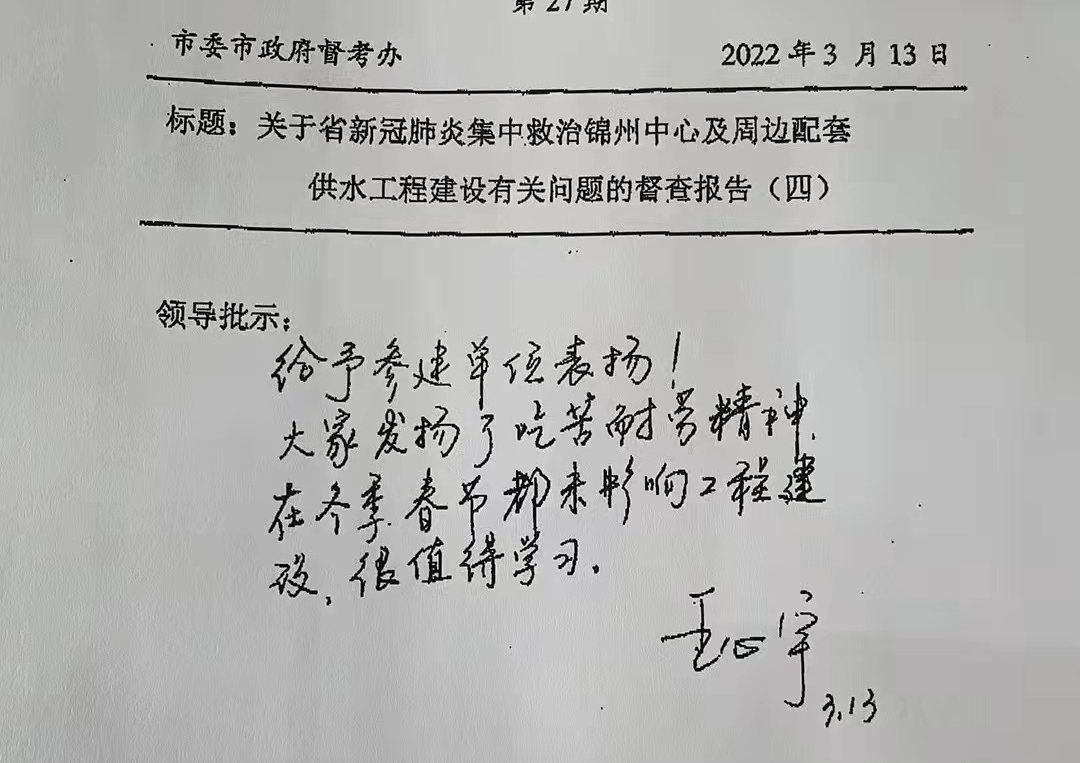 第27期
市委市政府督考办 2022年3月13日
标题：关于省新冠肺炎集中救治锦州中心及周边配套
供水工程建设有关问题的督查报告（四）
领导批示：
给予参建单位表扬！
大家发扬了吃苦耐劳精神，
在冬季春节都未影响工程建
设，很值得学习。
王心宇
3.13